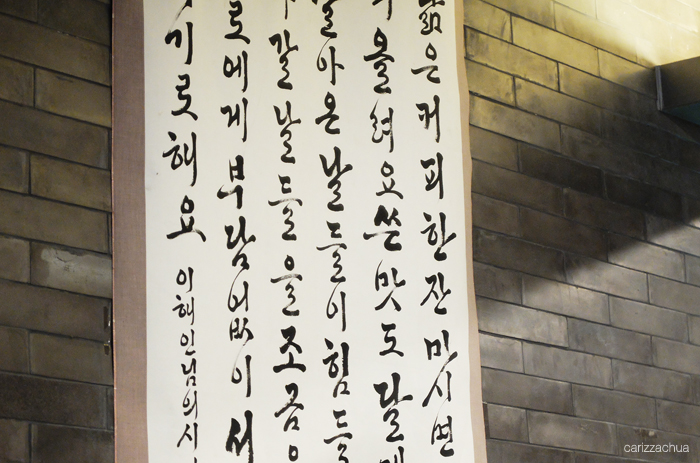 은 커피 한 잔 마시면
울려요 쓴 맛도 달
아온 날들이 힘들
갈 날들을 조금
로에게 부담없이 서
기로 해요
이해인님의 시